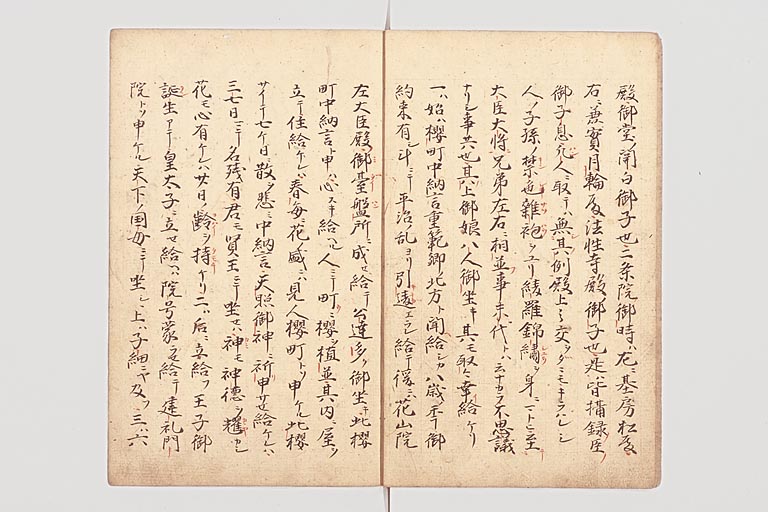 殿御堂ノ関白御子也二条院御時ハ左ニ基房松殿
右ニ兼實月輪殿法性寺殿ノ御子也是ハ皆攝録臣ノ
御子息凡人ニ取テハ無其例殿上ノ交ヲダニモキラハレシ
人ノ子孫ノ禁色雑袍ヲユリ綾羅錦繡ヲ身ニマトヒ至
大臣大将兄弟左右ニ相並事末代トハ云ナカラ不思議
ナリシ事共也其上御娘八人御坐キ其モ取々ニ幸給ヘリ
一ハ始ハ櫻町中納言重範卿ノ北方ト聞給シカ八歳ニテ御
約束有シ斗ニテ平治ノ乱ヨリ引違エラレ給テ後ニハ花山院
左大臣殿ノ御臺盤所ニ成セ給テ公達多ク御坐キ此櫻
町中納言ト申ハ心スキ給ヘル人ニテ町ニ櫻ヲ植並其内ニ屋ヲ
立テ住給ケレハ春毎ニ花ノ盛ニハ見人櫻町トソ申ケル此櫻
サイテ七ケ日ニ散ヲ悲ミ中納言天照御神ニ祈申サセ給ケレハ
三七日マテ名残有君モ賢王ニテ坐セハ神モ神徳ヲ耀シ
花モ心有ケレハ廿日ノ齢ヲ持ケリ二ハ后ニ立給フ王子御
誕生アテ皇太子ニ立セ給ハ院号蒙ラセ給テ建礼門
院トソ申ケル天下ノ国母ニテ坐シ上ハ子細ニヤ及フ三ハ六